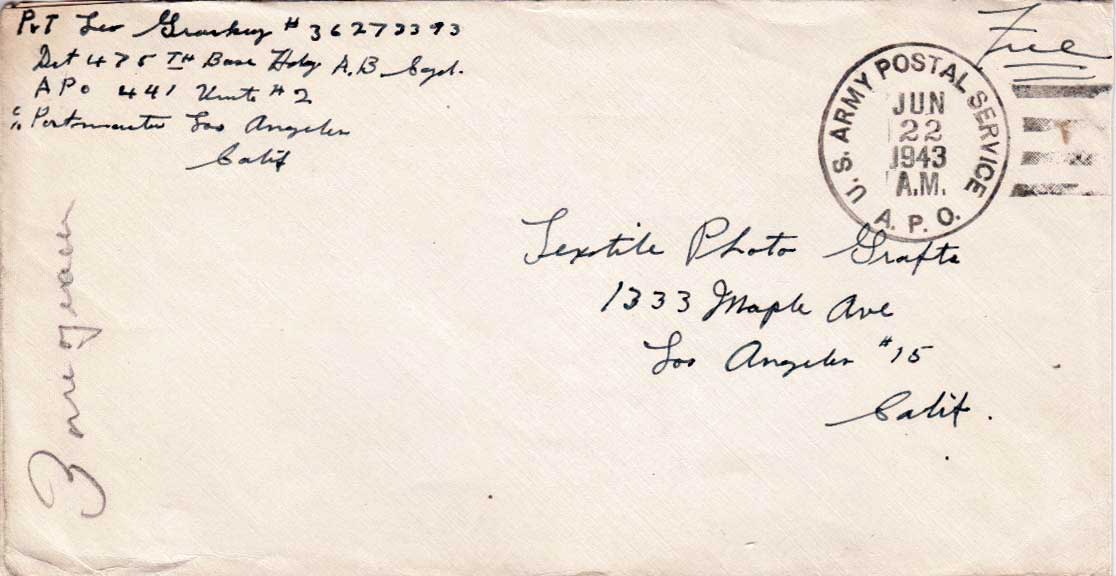 Pvt Leo # 36273393
Det 475 TH Base Hdq A.B Sqd.
APO 441 Unit # 2
c/o Postmaster Los Angeles
Calif
Free
U.S. ARMY POSTAL SERVICE
JUN
22
1943
A.M.
A.P.O.
Textile Photo Grafts
1333 Maple Ave
Los Angeles #15
Calif.
3